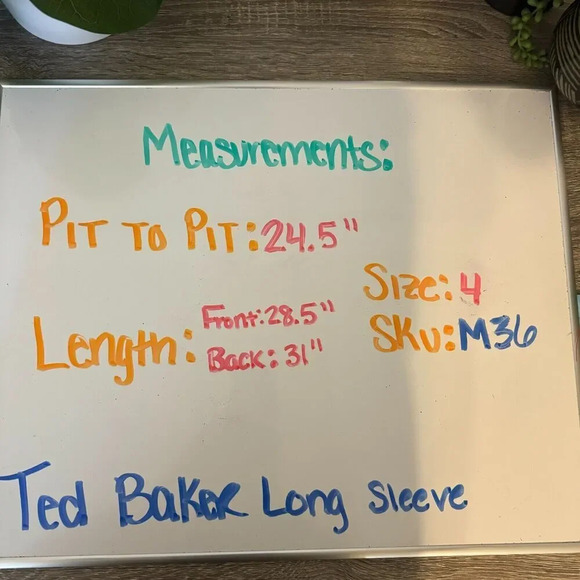 Measurements:
Pit to Pit: 24.5"
Length: Front: 28.5"
Back: 31"
Size: 4
SKU: M36
Ted Baker Long Sleeve